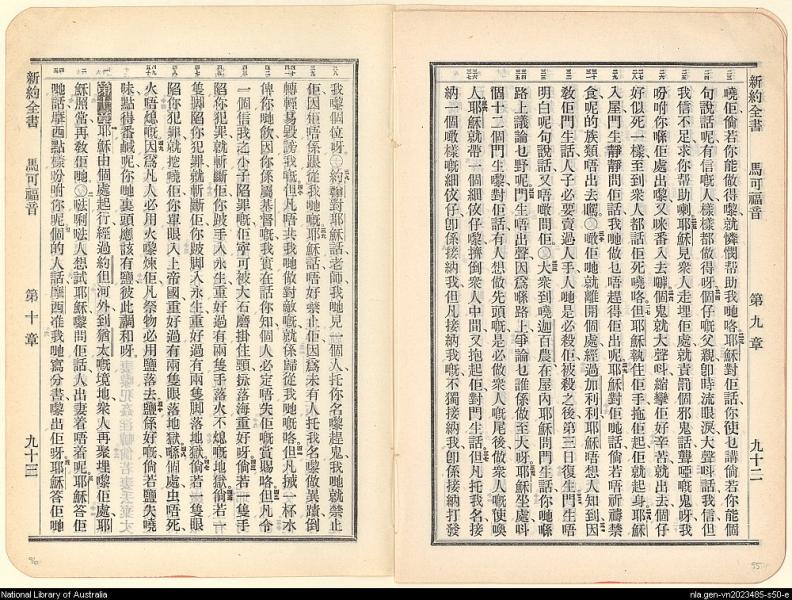 新約全書 馬可福音 第九章 九十二
嘵佢倘若你能做得嚟就憐憫幫助我哋咯耶穌對佢話你使乜講倘若你能個
句說話呢有信嘅人樣樣都做得呀個仔嘅父親卽時流眼淚大聲呌話我信但
我信不足求你幫助喇耶穌見衆人走埋佢處就責罰個邪鬼話聾啞嘅鬼呀我
吩咐你喺佢處出嚟又咪番入去嗰個鬼就大聲呌縮攣佢好辛苦就出去個仔
好似死一樣至到衆人都話佢死嘵咯但耶穌執住佢手拖佢起佢就起身耶穌
入屋門生靜靜問佢話我哋做乜唔趕得佢出呢耶穌對佢哋話倘若唔祈禱禁
食呢的族類唔出去嘅〇噉佢哋就離開個處經過加利利耶穌唔想人知到因
敎佢門生話人子必要賣過人手人哋是必殺佢被殺之後第三日復生門生唔
明白呢句說話又唔敢問佢〇大衆到嘵迦百農在屋內耶穌問門生話你哋喺
路上議論乜野呢門生唔出聲因爲喺路上爭論乜誰係做至大呀耶穌坐處呌
個十二個門生嚟對佢話有人想做先頭嘅是必做衆人嘅尾後做衆人嘅使喚
人耶穌就帶一個細蚊仔嚟擠倒衆人中間又抱起佢對門生話但凡托我名接
納一個噉樣嘅細蚊仔卽係接納我但凡接納我嘅不獨接納我卽係接納打發
我嚟個位呀〇約翰對耶穌話老師我哋見一個人托你名嚟趕鬼我哋就禁止
佢因佢唔係跟從我哋嘅耶穌話唔好禁止佢因爲未有人托我名嚟做異蹟倒
轉輕易毀謗我嘅但凡唔共我哋做對敵嘅就係歸從我哋嘅咯但凡搣一杯水
俾你哋飲因你係屬基督嘅我實在話你知個人必定唔失佢嘅賞賜咯但凡令
一個信我之小子陷罪嘅佢寧可被大石磨掛住頸掞落海重好呀倘若一隻手
陷你犯罪就斬斷佢你跛手入永生重好過有兩隻手落火不熄嘅地獄倘若一
隻脚陷你犯罪就斬斷佢你跛脚入永生重好過有兩隻脚落地獄倘若一隻眼
陷你犯罪就挖嘵佢你單眼入上帝國重好過有兩隻眼落地獄喺個處虫唔死
火唔熄嘅因爲凡人必用火嚟煉佢凡祭物必用鹽落去鹽係好嘅倘若鹽失嘵
味點得番鹹呢你哋裏頭應該有鹽彼此調和呀
第十章耶穌由個處起行經過約但河外到猶太嘅境地衆人再聚埋嚟佢處耶
穌照常再敎佢哋〇𠵽唎㘔人想試耶穌嚟問佢話人出妻着唔着呢耶穌答佢
哋話摩西點樣吩咐你呢個的人話摩西准我哋寫分書嚟出佢呀耶穌答佢哋
新約全書 馬可福音 第十章 九十三
National Library of Australia
nla.gen-vn2023485-s50-e